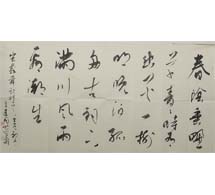 春陰垂野
草青青時有
幽花一樹
明晚泊孤
舟古祠下
滿川風雨
看潮生